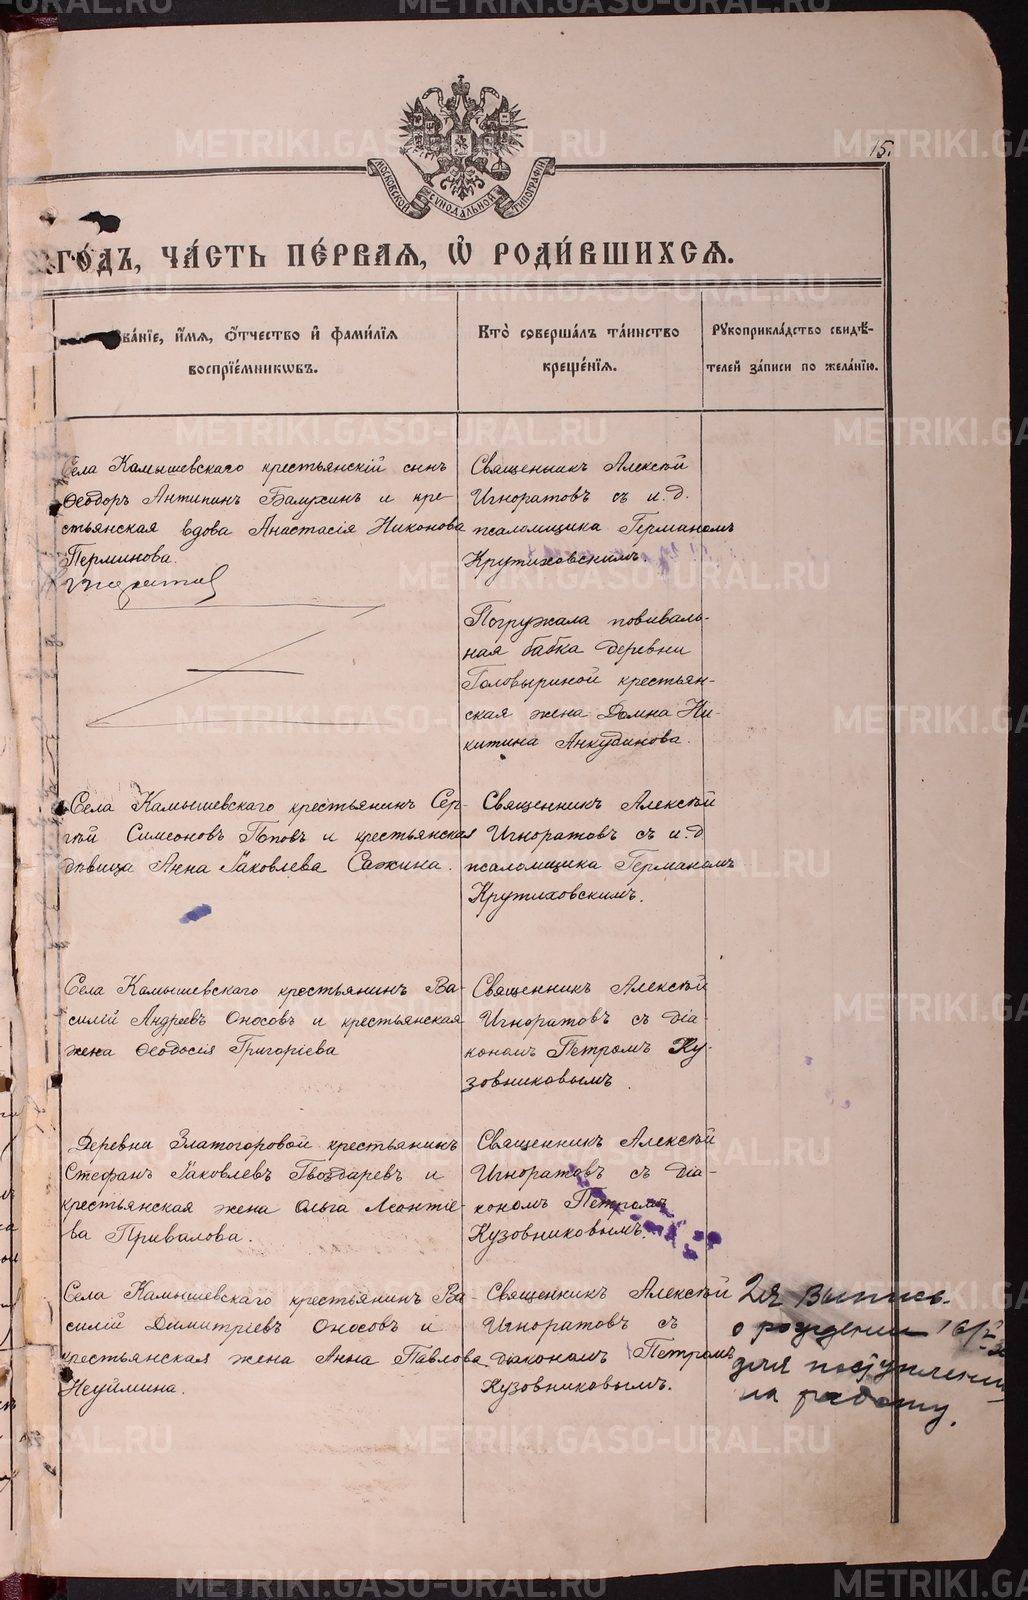 15.
МОСКОВСКОЙ СѴНОДАЛЬНОЙ ТИПОГРАФІИ
ГО́ДЪ, ЧА́СТЬ ПЕ́РВАѦ, Ѡ҆ РОДИ́ВШИХСѦ.
ва́нїе, и҆́мѧ, ѻ҆́тчество и҆ фами́лїѧ
воспрїе́мникѡвъ.
Кто̀ соверша́лъ та́инство
креще́нїѧ.
Рꙋкоприкла́дство свидѣ́-
телей за́писи по жела́нїю.
Села Камышевскаго крестьянскій сынъ
Ѳеодоръ Антипинъ Балухинъ и кре-
стьянская вдова Анастасія Никонова
Перминова.
Священникъ Алексѣй
Игноратовъ съ и. д.
псаломщика Германомъ
Крутиховскимъ
Погружала повиваль-
ная бабка деревни
Головыриной крестьян-
ская жена Домна Ни-
китина Анкудинова.
Села Камышевскаго крестьянинъ Сер-
гѣй Симеоновъ Поповъ и крестьянская
дѣвица Анна Іаковлева Сажина.
Священникъ Алексѣй
Игноратовъ съ и. д
псаломщика Германомъ
Крутиховскимъ.
Села Камышевскаго крестьянинъ Ва-
силій Андреевъ Оносовъ и крестьянская
жена Ѳеодосія Григоріева
Священникъ Алексѣй
Игноратовъ съ діа-
кономъ Петромъ Ку-
зовниковымъ.
Деревни Златогоровой крестьянинъ
Стефанъ Іаковлевъ Гвоздаревъ и
крестьянская жена Ольга Леонтіе-
ва Привалова.
Священникъ Алексѣй
Игноратовъ съ діа-
кономъ Петромъ
Кузовниковымъ.
Села Камышевскаго крестьянинъ Ва-
силій Димитріевъ Оносовъ и
крестьянская жена Анна Павлова
Неуймина.
Священникъ Алексѣй
Игноратовъ съ
діакономъ Петромъ
Кузовниковымъ.
2ая Выпись
о рождении
для поступления
на работу.
METRIKI.GASO-URAL.RU